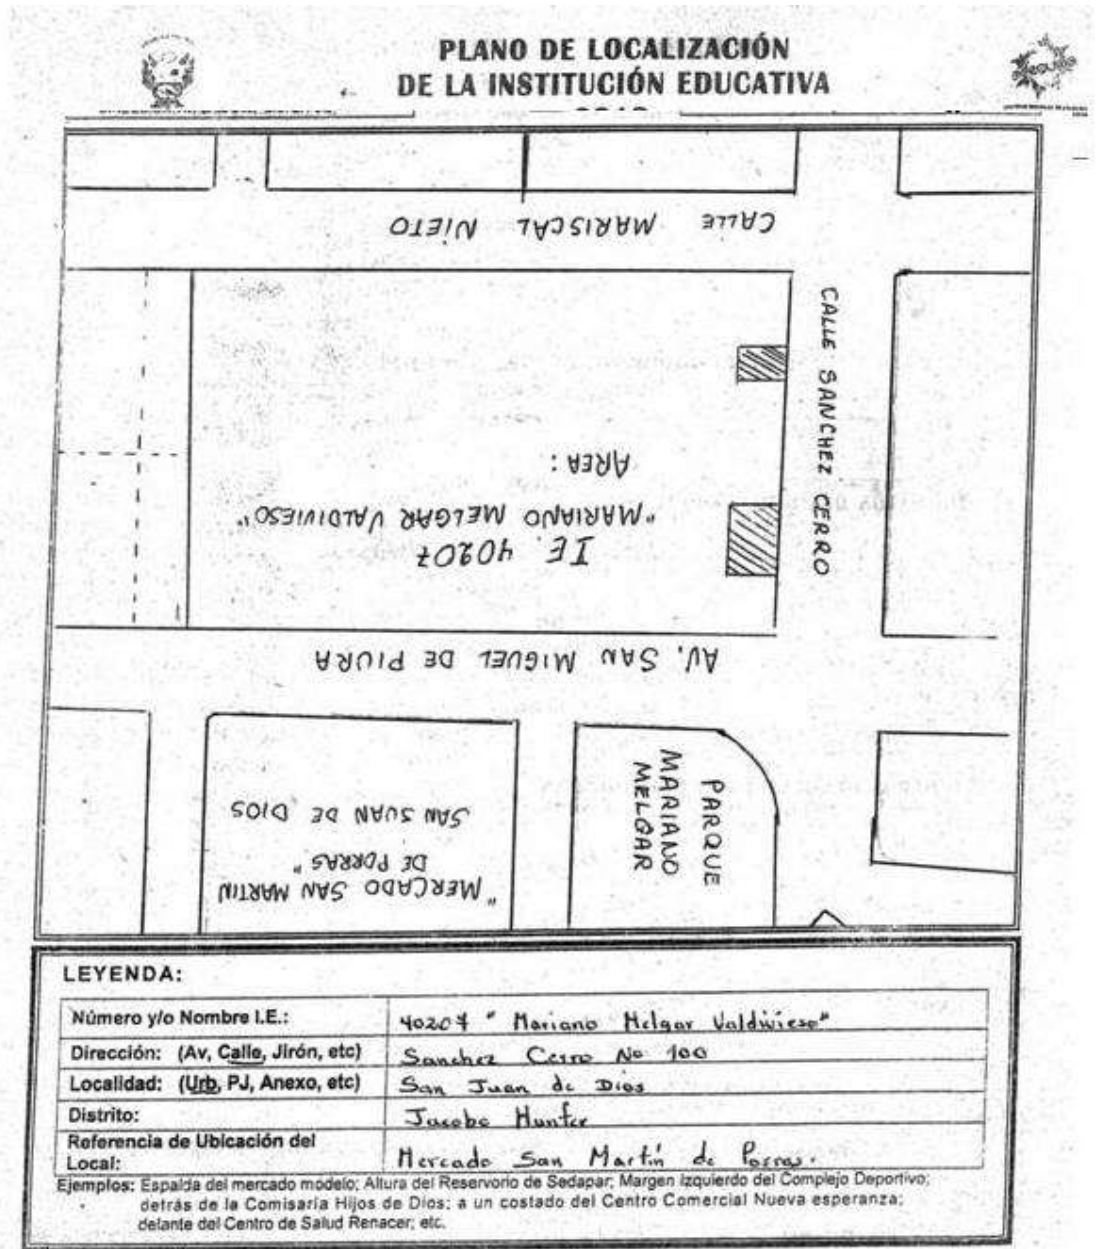 PLANO DE LOCALIZACIÓN
DE LA INSTITUCIÓN EDUCATIVA
CALLE MARISCAL NIETO
CALLE SANCHEZ CERRO
I.E. 40207
"MARIANO MELGAR VALDIVIESO"
AREA:
AV. SAN MIGUEL DE PIURA
"MERCADO SAN MARTIN
DE PORRAS"
SAN JUAN DE DIOS
PARQUE
MARIANO
MELGAR
LEYENDA:
Número y/o Nombre I.E.: 40207 "Mariano Melgar Valdivieso"
Dirección: (Av, Calle, Jirón, etc) Sanchez Cerro No 100
Localidad: (Urb, PJ, Anexo, etc) San Juan de Dios
Distrito: Jacobo Hunter
Referencia de Ubicación del
Local: Mercado San Martín de Porras.
Ejemplos: Espalda del mercado modelo; Altura del Reservorio de Sedapar; Margen izquierdo del Complejo Deportivo;
detrás de la Comisaria Hijos de Dios; a un costado del Centro Comercial Nueva esperanza;
delante del Centro de Salud Renacer; etc.